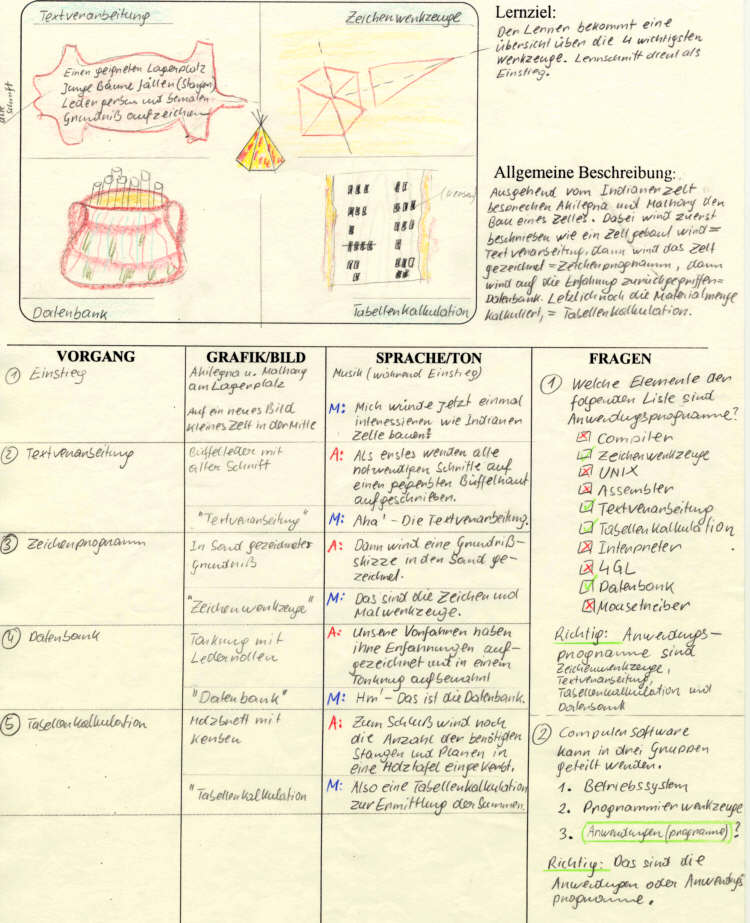 Textverarbeitung
Zeichenwerkzeuge
alte
Schrift
Einen geeigneten Lagerplatz
Junge Bäume fällen (Stangen)
Leder gerben und bemalen
Grundriß aufzeichnen
(Kerben)
Datenbank
Tabellenkalkulation
Lernziel:
Der Lerner bekommt eine
Übersicht über die 4 wichtigsten
Werkzeuge. Lernschritt dient als
Einstieg.
Allgemeine Beschreibung:
Ausgehend vom Indianerzelt
besprechen Akilegna und Malhory den
Bau eines Zeltes. Dabei wird zuerst
beschrieben wie ein Zelt gebaut wird =
Textverarbeitung, dann wird das Zelt
gezeichnet = Zeichenprogramm, dann
wird auf die Erfahrung zurückgegriffen =
Datenbank. Letzlich noch die Materialmenge
kalkuliert, = Tabellenkalkulation.
VORGANG
GRAFIK/BILD
SPRACHE/TON
FRAGEN
1 Einstieg
Akilegna u. Malhory
am Lagerplatz
Auf ein neues Bild
kleines Zelt in der Mitte
Musik (während Einstieg)
M: Mich würde jetzt einmal
interessieren wie Indianer
Zelte bauen?
2 Textverarbeitung
Büffelleder mit
alter Schrift
"Textverarbeitung"
A: Als erstes werden alle
notwendigen Schritte auf
einen gegerbten Büffelhaut
aufgeschrieben.
M: Aha' - Die Textverarbeitung.
3 Zeichenprogramm
In Sand gezeichneter
Grundriß
"Zeichenwerkzeuge"
A: Dann wird eine Grundriß-
skizze in den Sand ge-
zeichnet.
M: Das sind die Zeichen und
Malwerkzeuge.
4 Datenbank
Tonkrug mit
Lederrollen
"Datenbank"
A: Unsere Vorfahren haben
ihre Erfahrungen auf-
gezeichnet und in einem
Tonkrug aufbewahrt
M: Hm' - Das ist die Datenbank.
5 Tabellenkalkulation
Holzbrett mit
Kerben
"Tabellenkalkulation
A: Zum Schluß wird noch
die Anzahl der benötigten
Stangen und Planen in
eine Holztafel eingekerbt.
M: Also eine Tabellenkalkulation
zur Ermittlung der Summen.
1 Welche Elemente der
folgenden Liste sind
Anwendungsprogramme?
Compiler
Zeichenwerkzeuge
UNIX
Assembler
Textverarbeitung
Tabellenkalkulation
Interpreter
4GL
Datenbank
Mousetreiber
Richtig: Anwendungs-
programme sind
Zeichenwerkzeuge,
Textverarbeitung,
Tabellenkalkulation und
Datenbank
2 Computersoftware
kann in drei Gruppen
geteilt werden.
1. Betriebssystem
2. Programmierwerkzeuge
3. Anwendungen(programme)?
Richtig: Das sind die
Anwendungen oder Anwendungs
programme.